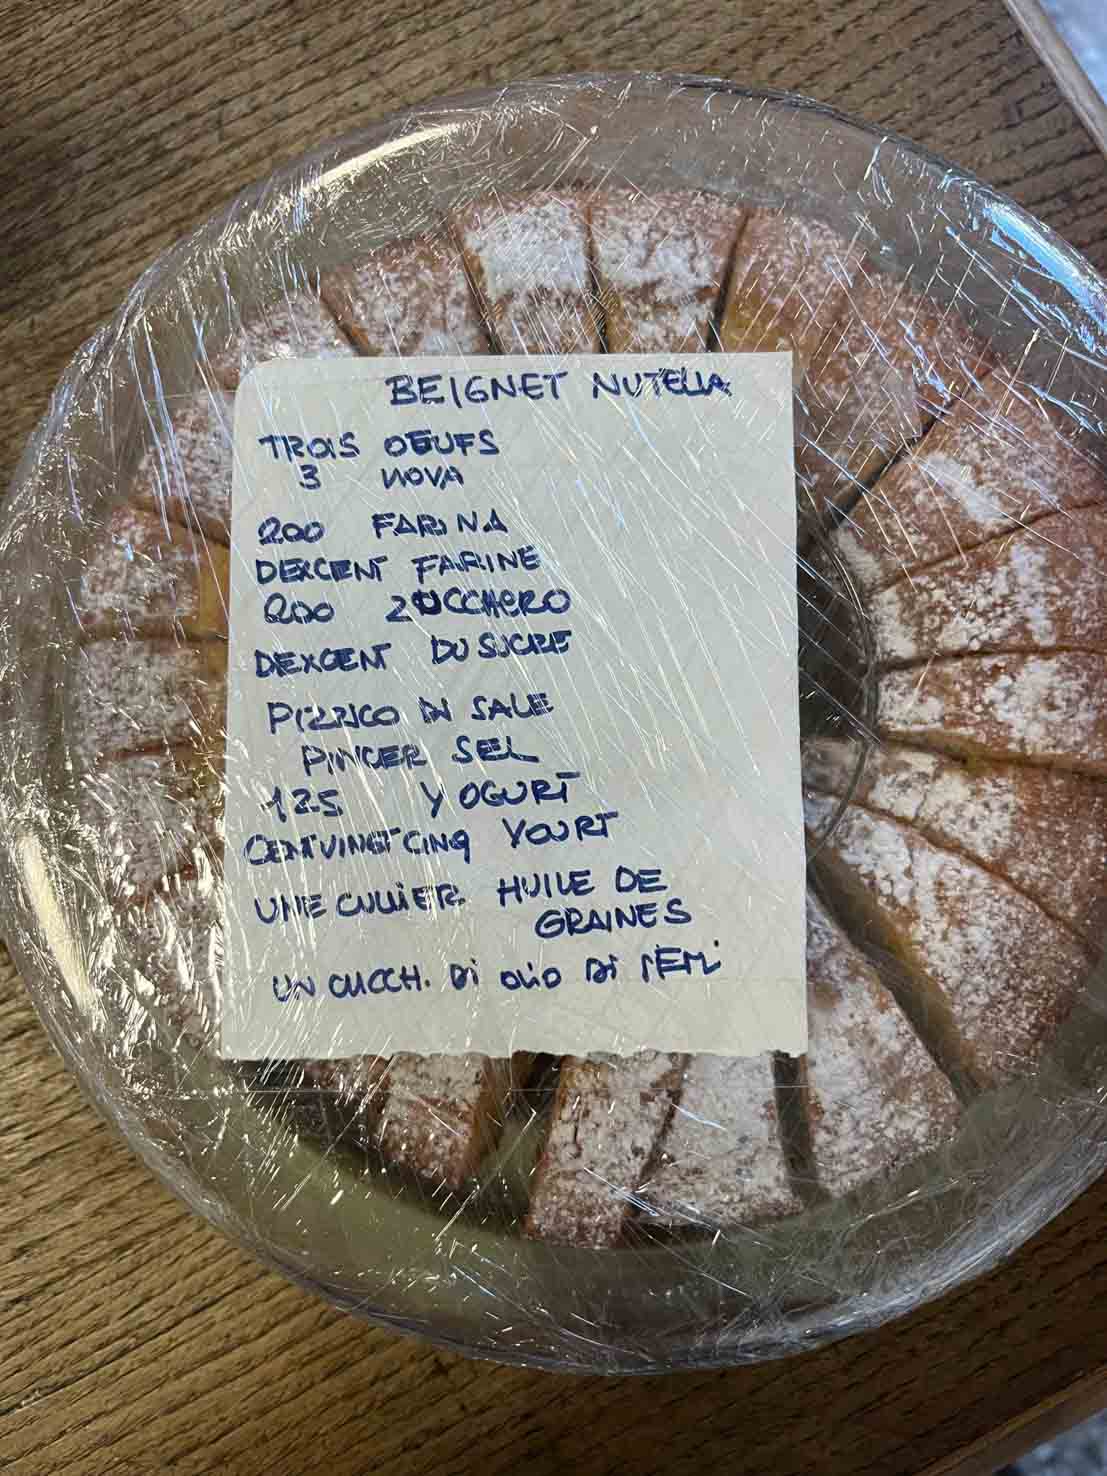 BEIGNET NUTELLA
TROIS OEUFS
3 UOVA
200 FARINA
DEXCENT FARINE
200 ZUCCHERO
DEXCENT DU SUCRE
PIZZICO DI SALE
PINCER SEL
125 YOGURT
CENTVINGTCINQ YOURT
UNE CULLIER HUILE DE
GRAINES
UN CUCCH. Di OLiO Di SEMi